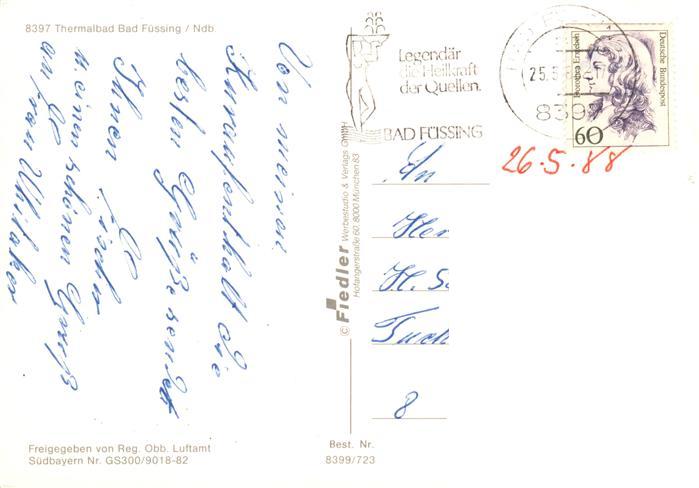 8397 Thermalbad Bad Füssing / Ndb
Von meinen
Kuraufenthalt die
besten Grüße sendet
Ihnen
u. einen schönen Gruß
an
Frau
Freigegeben von Reg. Obb. Luftamt
Südbayern Nr. GS300/9018-82
© Fiedler Werbestudio & Verlags GmbH
Hofangerstraße 60, 8000 München 83
Best. Nr.
8399/723
Legendär
die Heilkraft
der Quellen.
BAD FÜSSING
25.5.8
8397
Dorothea Erxleben
Deutsche Bundespost
60
26.5.88
An
Her
H. S
Tuch
8